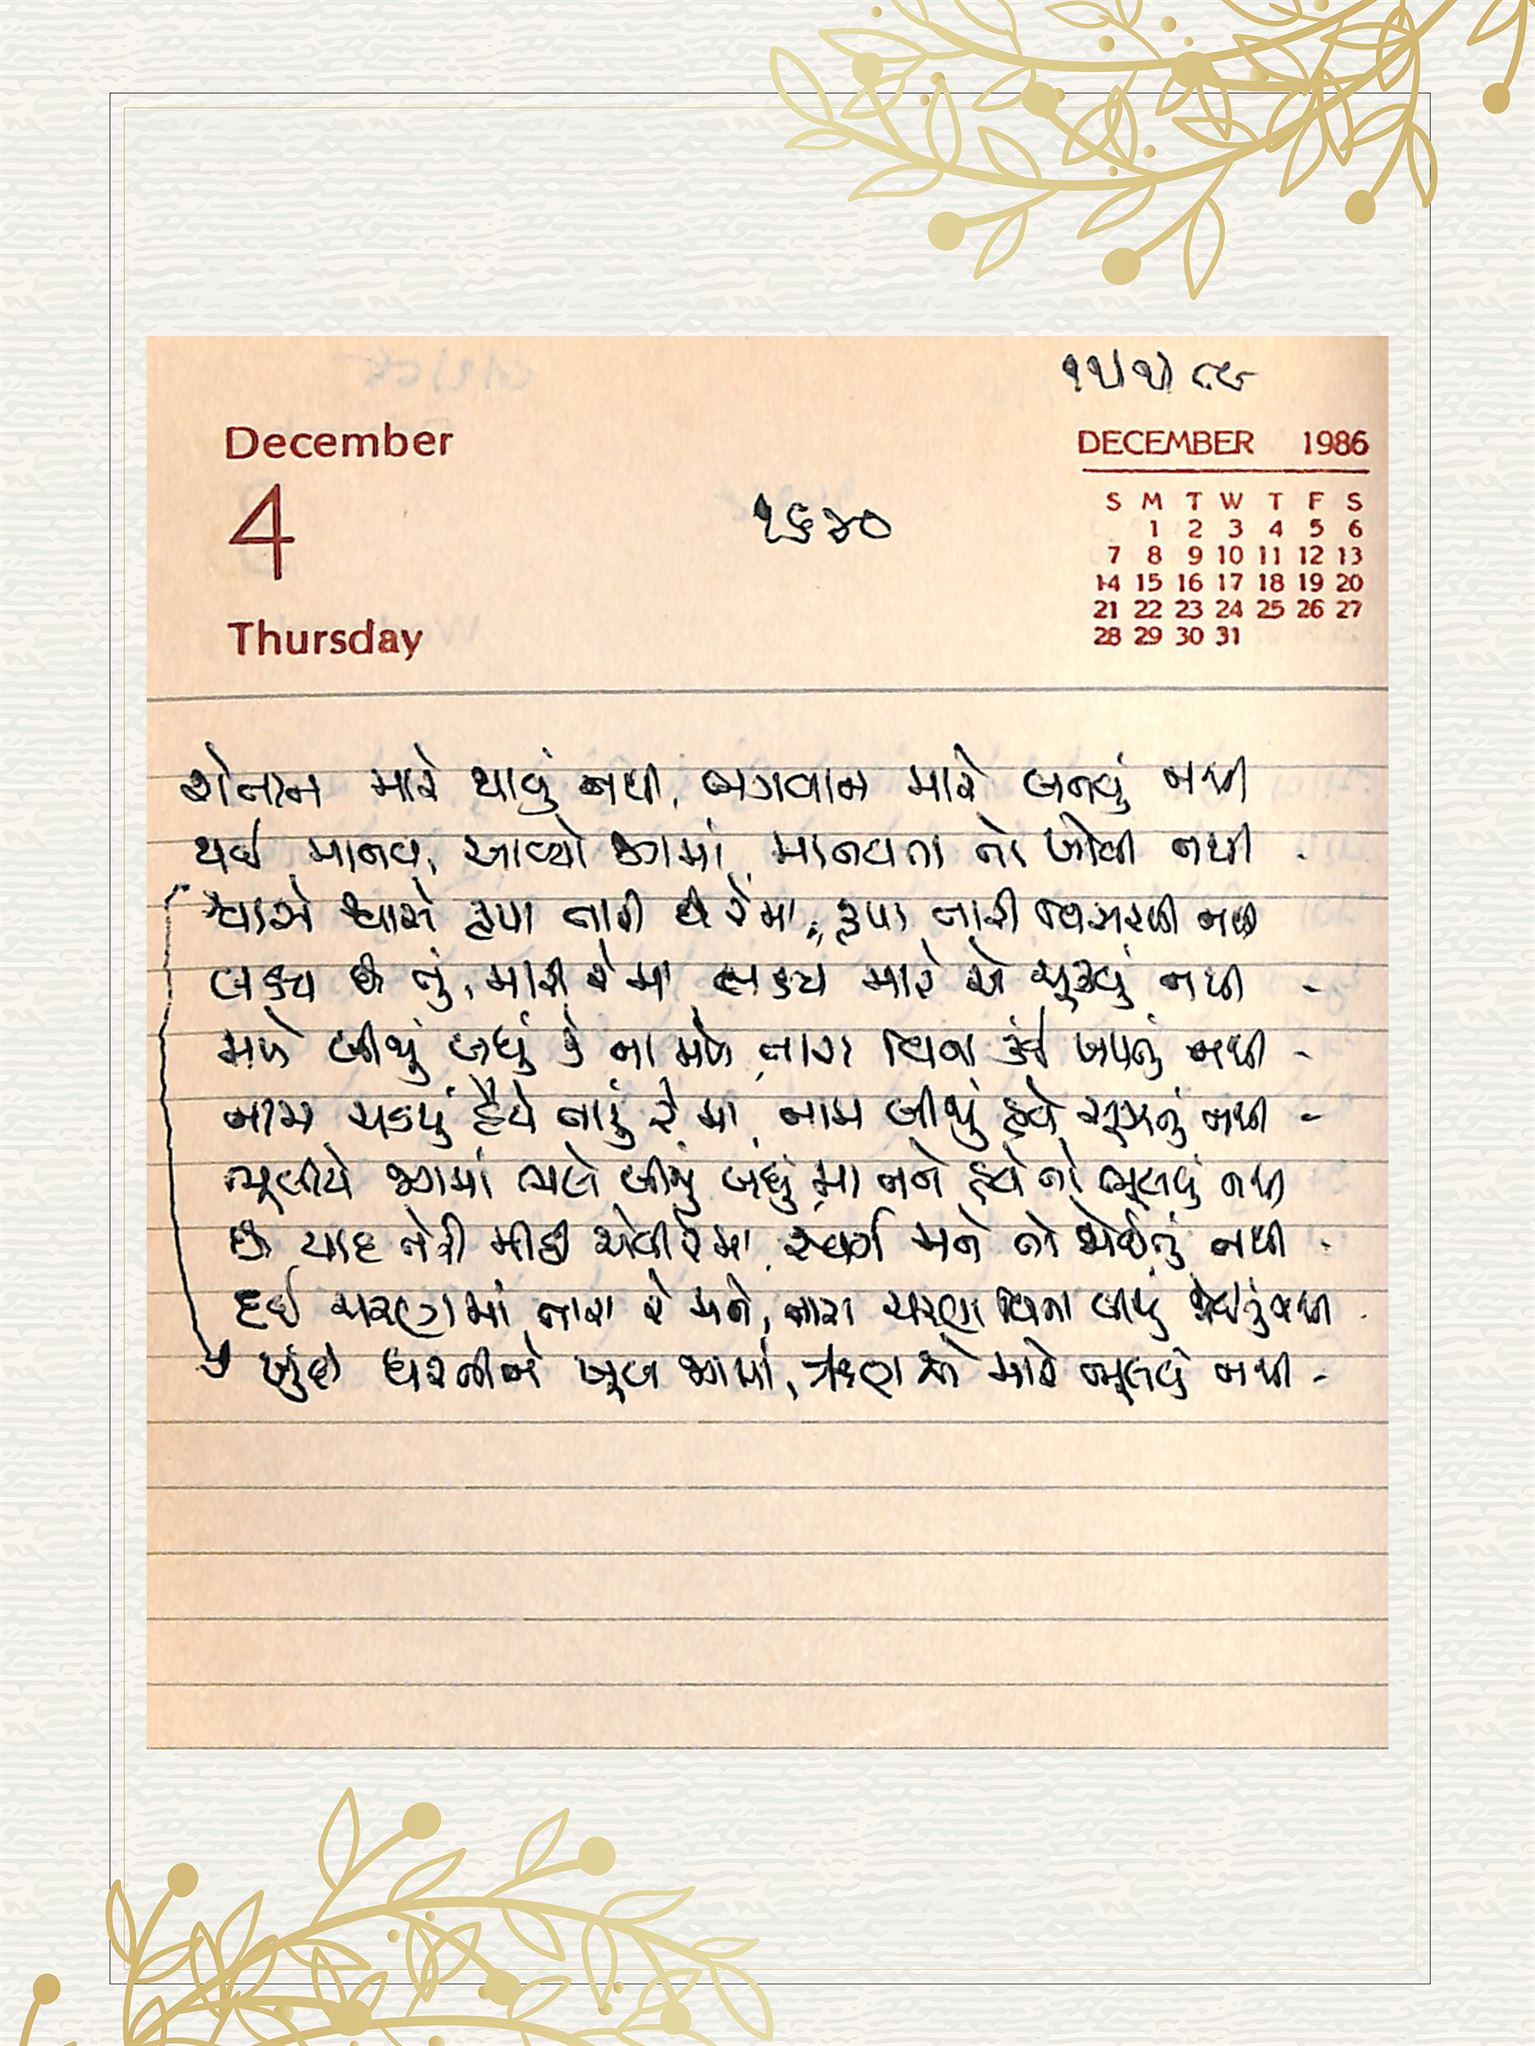 ૧૫/૧/૮૯
December
DECEMBER 1986
4
૧૬૪૦
S M T W T F S
1 2 3 4 5 6
7 8 9 10 11 12 13
14 15 16 17 18 19 20
21 22 23 24 25 26 27
28 29 30 31
Thursday
શેતાન મારે થાવું નથી, ભગવાન મારે બનવું નથી
થઈ માનવ, આવ્યો જગમાં, માનવતા તો ખોવી નથી -
શ્વાસે શ્વાસે કૃપા તારી છે રે મા, કૃપા તારી વિસરવી નથી
લક્ષ્ય છે તું, મારી રે મા લક્ષ્ય મારે એ ચૂકવું નથી -
મળે બીજું બધું કે ના મળે, તારા વિના કંઈ ખપતું નથી -
નામ ચડયું હૈયે તારું રે મા, નામ બીજું હવે સૂઝતું નથી -
ભૂલીયે જગમાં ભલે બીજું બધું, મા તને હવે તો ભૂલવું નથી
છે યાદ તેરી મીઠી એવી રે મા, સ્વર્ગ મને તો જોઈતું નથી -
દઈ ચરણમાં તારા રે મને, તારા ચરણ વિના બીજું જોઈતું નથી -
ખુંદી ધરતીને ખૂબ જગમાં, ઋણ એ મારે ભૂલવું નથી -